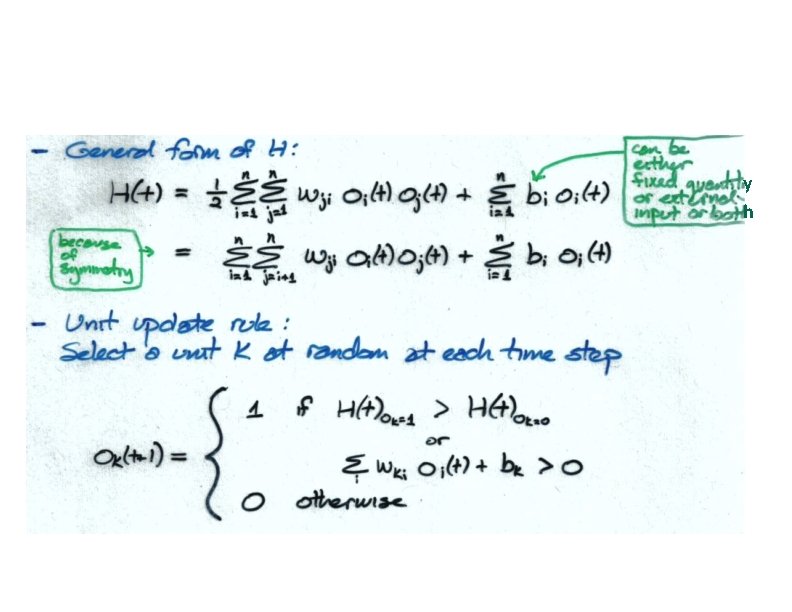 - General form of H:
H(t) = 1/2 Σ_{i=1}^{n} Σ_{j=1}^{n} w_{ji} o_i(t) o_j(t) + Σ_{i=1}^{n} b_i o_i(t)
can be
either
fixed quantity
or external
input or both
because
of
symmetry
= Σ_{i=1}^{n} Σ_{j=i+1}^{n} w_{ji} o_i(t) o_j(t) + Σ_{i=1}^{n} b_i o_i(t)
- Unit update rule:
Select a unit K at random at each time step
o_k(t+1) = { 1 if H(t)_{o_k=1} > H(t)_{o_k=0}
or
Σ_i w_{ki} o_i(t) + b_k > 0
0 otherwise